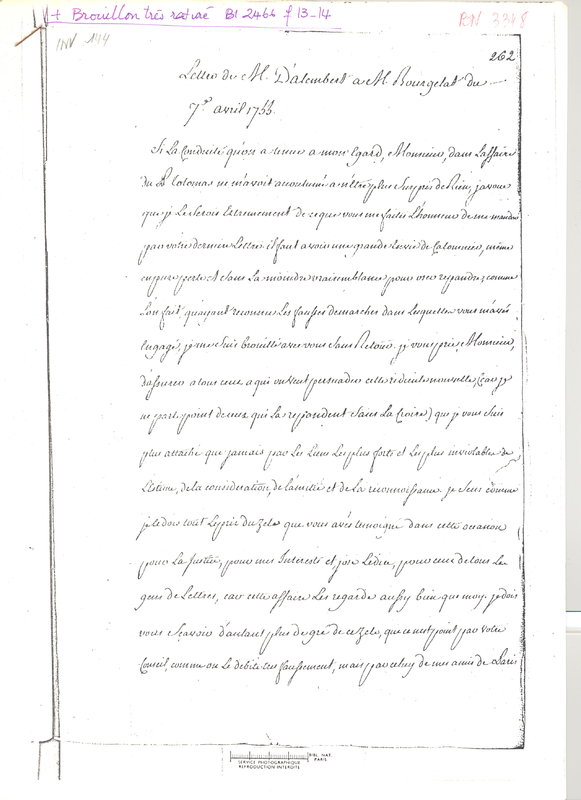 + Brouillon très raturé BI 2466 f 13-14
BN 3348
INV 144
262
Lettre de M. D'alembert a M. Bourgelat du
7e avril 1755.
Si La Conduite qu'on a tenue a mon Egard, Monsieur, dans L'affaire
du P. Tolomas ne m'avoit acoutumé a n'être plus Surpris de Rien, j'avoue
que je Le Serois Extremement de ce que vous me faites L'honneur de me mander
par votre derniere Lettre. il faut avoir une grande Envie de Calomnier, même
en pure perte et Sans La moindre vraisemblance pour oser repandre, comme
L'on fait qu'ayant reconnu Les fausses demarches dans Lesquelles vous m'avés
Engagé, je me Suis brouillé avec vous Sans Retour. je vous prie, Monsieur,
d'assurer a tous ceux a qui on veut persuader cette ridicule nouvelle, (Car je
ne parle point de ceux qui La repandent Sans La Croire) que je vous Suis
plus attaché que jamais par Les Liens Les plus forts et Les plus inviolables de
L'estime, de la consideration, de L'amitié et de La reconnoissance. je Sens comme
je le dois tout Le prix du zele que vous avés temoigné dans cette occasion
pour La Justice, pour mes Interests et j'ose Le dire, pour ceux de tous Les
gens de Lettres, car cette affaire Les regarde aussy bien que moy. je dois
vous Scavoir d'autant plus de gré de ce zele, que ce n'est point par votre
Conseil, comme on Le debite tres faussement, mais par celuy de mes amis de Paris
SERVICE PHOTOGRAPHIQUE
REPRODUCTION INTERDITE
BIBL. NAT.
PARIS